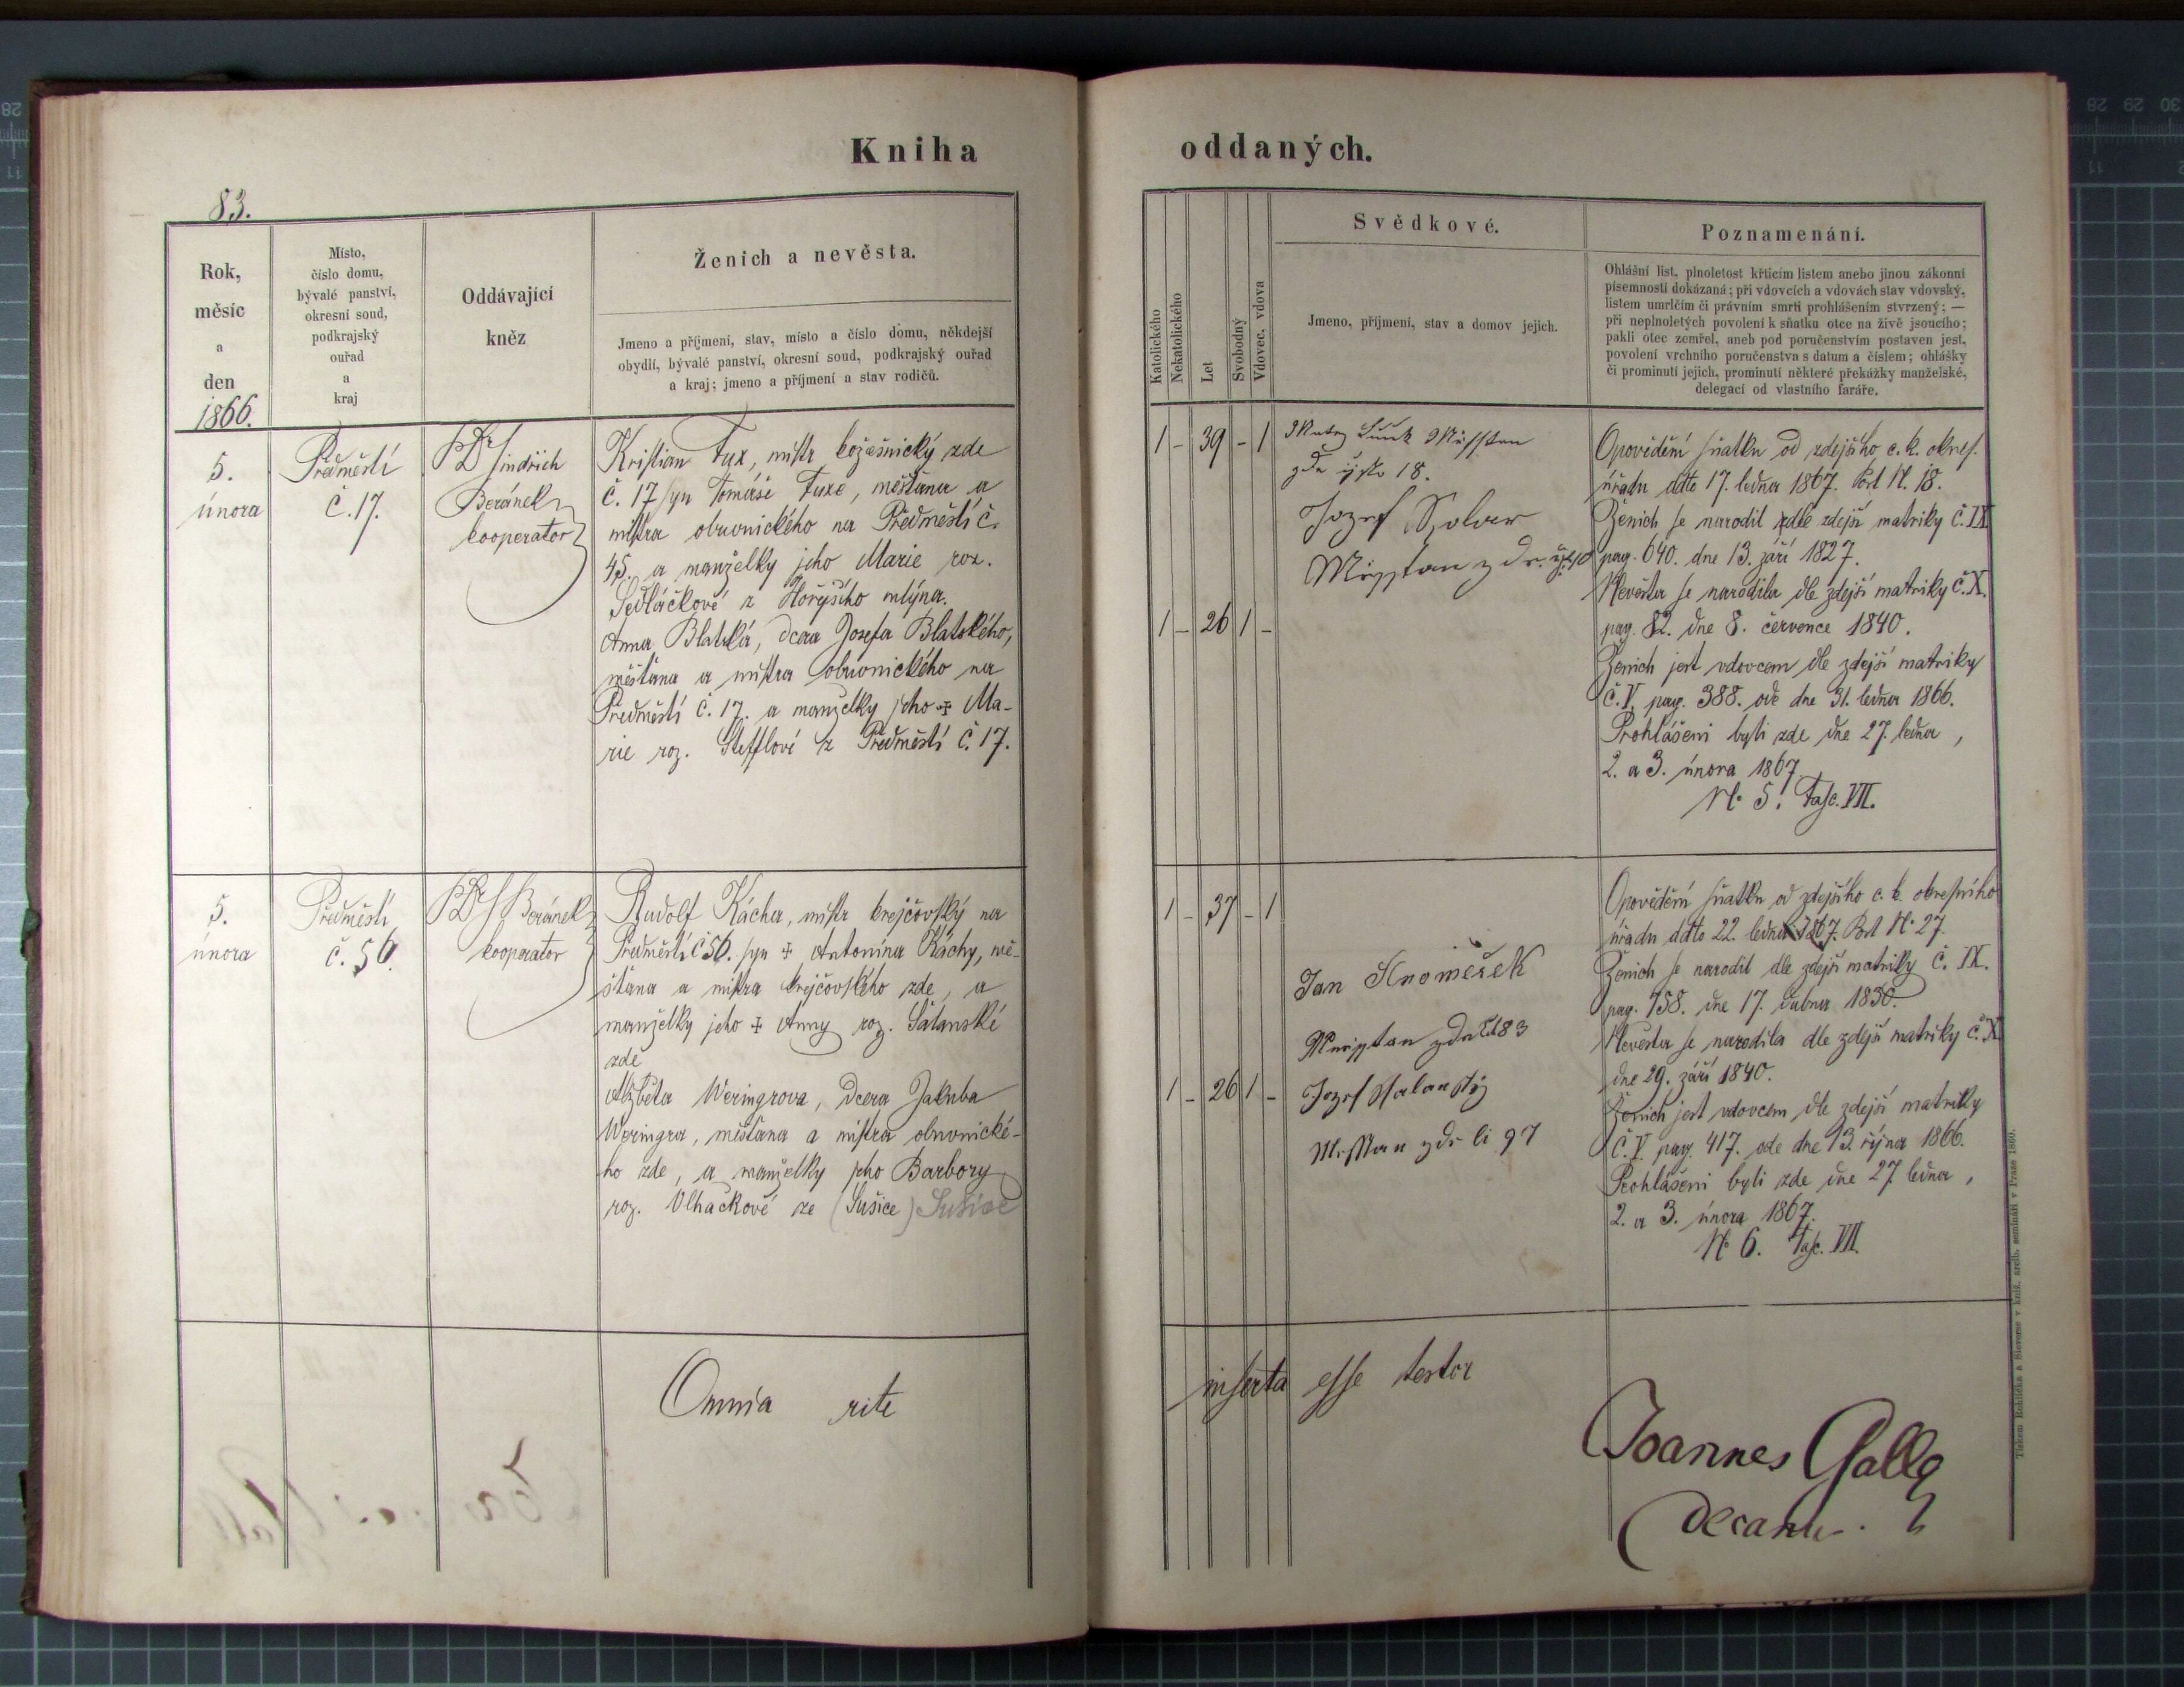 Kniha
oddaných.
83.
Rok,
měsíc
a
den
1866.
Místo,
číslo domu,
bývalé panství,
okresní soud,
podkrajský
ouřad
a
kraj
Oddávající
kněz
Ženich a nevěsta.
Jmeno a příjmení, stav, místo a číslo domu, někdejší
obydlí, bývalé panství, okresní soud, podkrajský ouřad
a kraj; jmeno a příjmení a stav rodičů.
Katolického
Nekatolického
Let
Svobodný
Vdovec, vdova
Svědkové.
Jmeno, příjmení, stav a domov jejich.
Poznamenání.
Ohlášní list, plnoletost křticím listem anebo jinou zákonní
písemností dokázaná; při vdovcích a vdovách stav vdovský,
listem umrlčím či právním smrti prohlášením stvrzený; —
při neplnoletých povolení k sňatku otce na živě jsoucího;
pakli otec zemřel, aneb pod poručenstvím postaven jest,
povolení vrchního poručenstva s datum a číslem; ohlášky
či prominutí jejich, prominutí některé překážky manželské,
delegací od vlastního faráře.
5.
února
Předměstí
č. 17.
Jindřich
Beránek
kooperator
Kristian Fux, mistr kožešnický zde
č. 17 syn Tomáše Fuxe, měšťana a
mistra obuvnického na Předměstí č.
45. a manželky jeho Marie roz.
Sedláčkové z Hořejšího mlýna.
Anna Blatská, dcera Josefa Blatského,
měšťana a mistra obuvnického na
Předměstí č. 17. a manželky jeho ✝ Ma-
rie roz. Štefflové z Předměstí č. 17.
1 - 39 - 1
1 - 26 1 -
18.
Jozef
Opovědění sňatku od zdejšího c. k. okres.
úřadu ddto 17. ledna 1867. Pod N. 18.
Ženich se narodil dle zdejší matriky č. IX
pag. 640. dne 13. září 1827.
Nevěsta se narodila dle zdejší matriky č. X.
pag. 82. dne 8. července 1840.
Ženich jest vdovcem dle zdejší matriky
č. V. pag. 388. ode dne 31. ledna 1866.
Prohlášeni byli zde dne 27. ledna,
2. a 3. února 1867.
N. 5. Fasc. VII.
5.
února
Předměstí
č. 56.
Beránek
kooperator
Rudolf Kácha, mistr krejčovský na
Předměstí č 56. syn ✝ Antonína Káchy, mě-
šťana a mistra krejčovského zde, a
manželky jeho ✝ Anny roz. Šatanské
zde
Alžběta Weringrova, dcera Jakuba
Weringra, měšťana a mistra obuvnické-
ho zde, a manželky jeho Barbory
roz. Vlhačkové ze (Sušice) Sušice
1 - 37 - 1
1 - 26 1 -
Jan
83
Jozef
97
Opovědění sňatku od zdejšího c. k. okresního
úřadu ddto 22. ledna 1867. Pod N. 27.
Ženich se narodil dle zdejší matriky č. IX.
pag. 758. dne 17. dubna 1830.
Nevěsta se narodila dle zdejší matriky č. X
dne 29. září 1840.
Ženich jest vdovcem dle zdejší matriky
č. V. pag. 417. ode dne 13. října 1866.
Prohlášeni byli zde dne 27 ledna,
2. a 3. února 1867.
N. 6. Fasc. VII.
Omnia rite
inserta esse testor
Joannes Galle
Tiskem Rohlíčka a Sieversa v kníž. arcib. semináři v Praze 1860.